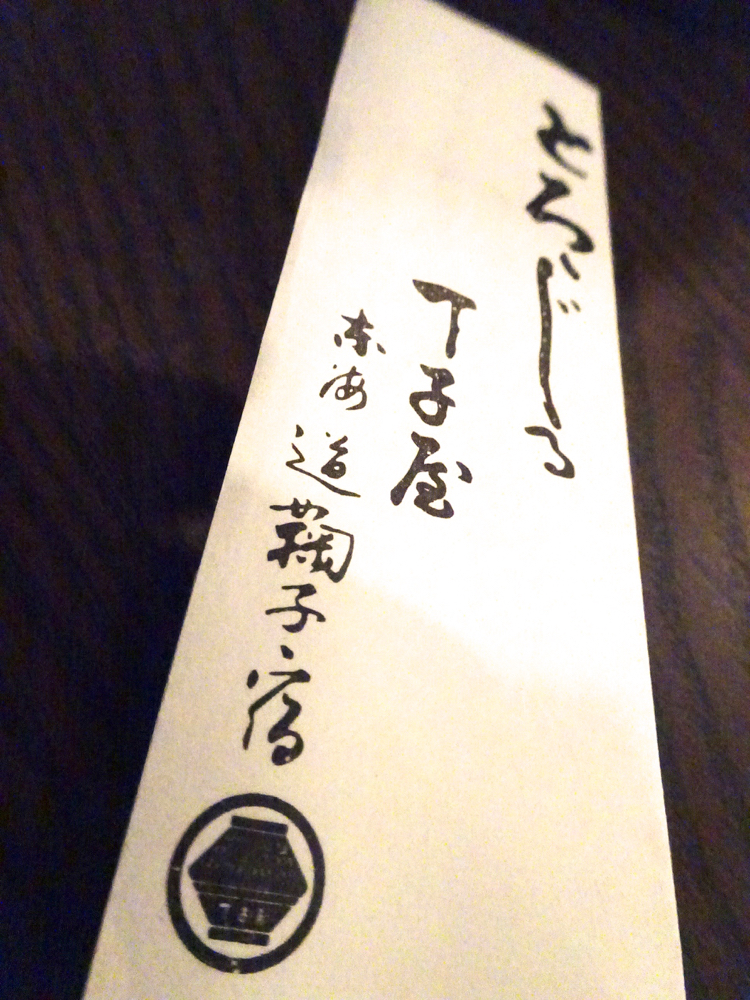 とろろじる
丁子屋
東海道鞠子宿
丁子屋